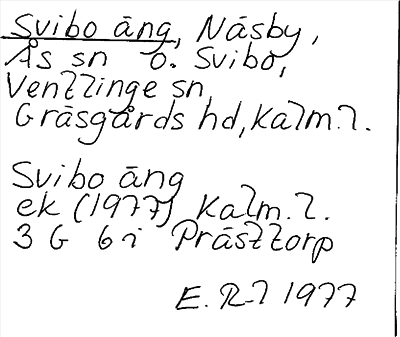 Svibo äng, Näsby,
Ås sn o. Svibo,
Ventlinge sn,
Gräsgårds hd, Kalm. l.
Svibo äng
ek (1977) Kalm. l.
3 G 6 i Prästtorp
E. R-l 1977